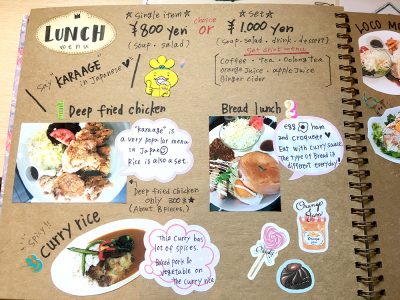 LUNCH
menu
☆single item☆
¥800 yen
(soup・salad)
choice
or
☆set☆
¥1,000 yen
(soup・salad・drink・dessert)
Set drink menu
Coffee・Tea・Oolong Tea
orange Juice・apple Juice
Ginger cider
Say "KARAAGE"
in Japanese♥
Deep fried chicken
"Karaage" is
a very popular menu
in Japan
Rice is also a set.
Deep fried chicken
only 300g☆
(About 8 pieces.)
Bread lunch 2
egg ham
and croquette♥
Eat with curry sauce
The type of Bread is
different everyday!
spicy!!
3 Curry rice
This curry has
lot of spices.
Baked pork &
vegetable on
the curry rice
Orange
Jam
Candy
LOCO M